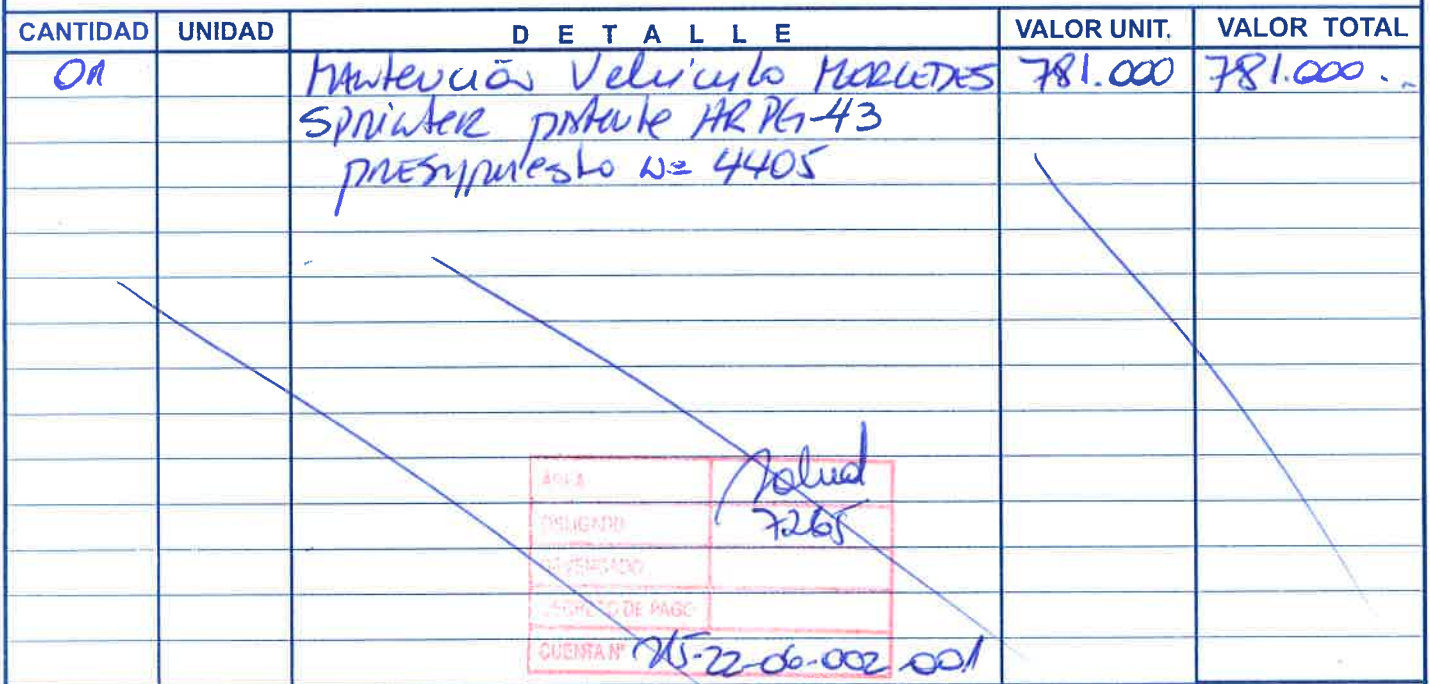 CANTIDAD UNIDAD DETALLE VALOR UNIT. VALOR TOTAL
01 Mantención Vehículo MERCEDES 781.000 781.000.-
Sprinter patente HRPG-43
presupuesto Nº 4405
AREA Salud
OBLIGADO 7265
DEVENGADO
DECRETO DE PAGO
CUENTA Nº 215-22-06-002-001